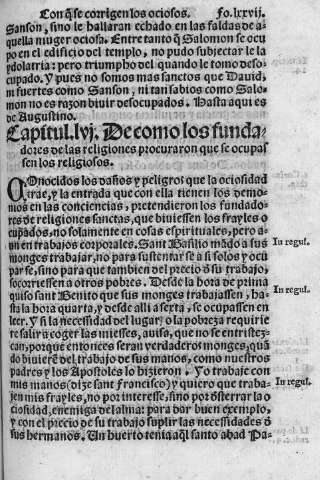 Con q̃ se corrigen los ociosos. Fo. lxxvij.
Sanson, sino le hallaran echado en las faldas de a-
quella muger ociosa. Entre tanto q̃ Salomon se ocu
po en el edificio del templo, no pudo subjectar le la
ydolatria: pero triumpho del quando le tomo deso-
cupado. Y pues no somos mas sanctos que Dauid,
ni fuertes como Sanson, ni tan sabios como Salo-
mon no es razon biuir desocupados. Hasta aqui es
de Augustino.
Capitul. lvj. De como los funda-
dores de las religiones procuraron que se ocupas
sen los religiosos.
COnocidos los daños y peligros que la ociosidad
trae, y la entrada que con ella tienen los demo-
nios en las conciencias, pretendieron los fundado-
res de religiones sanctas, que biuiessen los frayles o
cupados, no solamente en cosas espirituales, pero a-
un en trabajos corporales. Sant Basilio mãdo a sus
monges trabajar, no para sustentar se a si solos y ocu
par se, sino para que tambien del precio d̃ su trabajo,
socorriessen a otros pobres. Desde la hora de prima
quiso sant Benito que sus monges trabajassen, ha-
sta la hora quarta, y desde alli a sexta, se ocupassen en
leer. Y si la necessidad del lugar, o la pobreza requirie
re salir a coger las miesses, auisa, que no se entristez-
can, porque entonces seran verdaderos monges, quã
do biuierẽ del trabajo de sus manos, como nuestros
padres y los Apostoles lo hizieron. Yo trabaje con
mis manos (dize sant Francisco) y quiero que traba-
jen mis frayles, no por interesse, sino por d̃sterrar la o
ciosidad, enemiga del alma: para dar buen exemplo,
y con el precio de su trabajo suplir las necessidades d̃
sus hermanos. Un huerto tenia aq̃l santo abad Pa-
In regul.
In regul.
In regul.